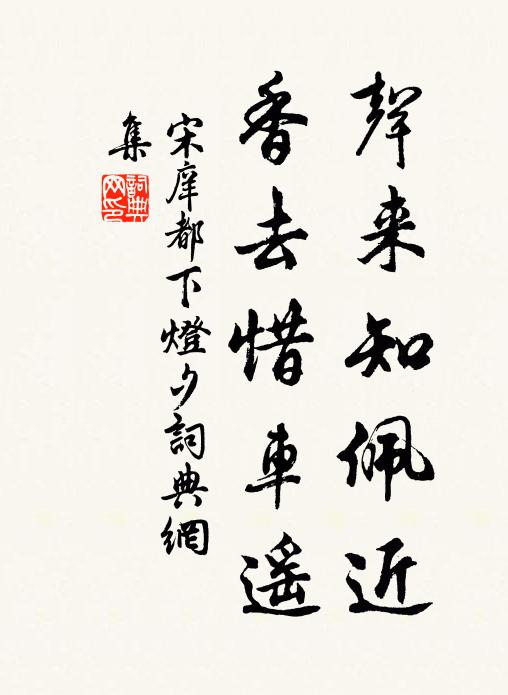 聲来知佩近
香去惜車遥
宋庠都下燈夕詞典網
集
詞典網印